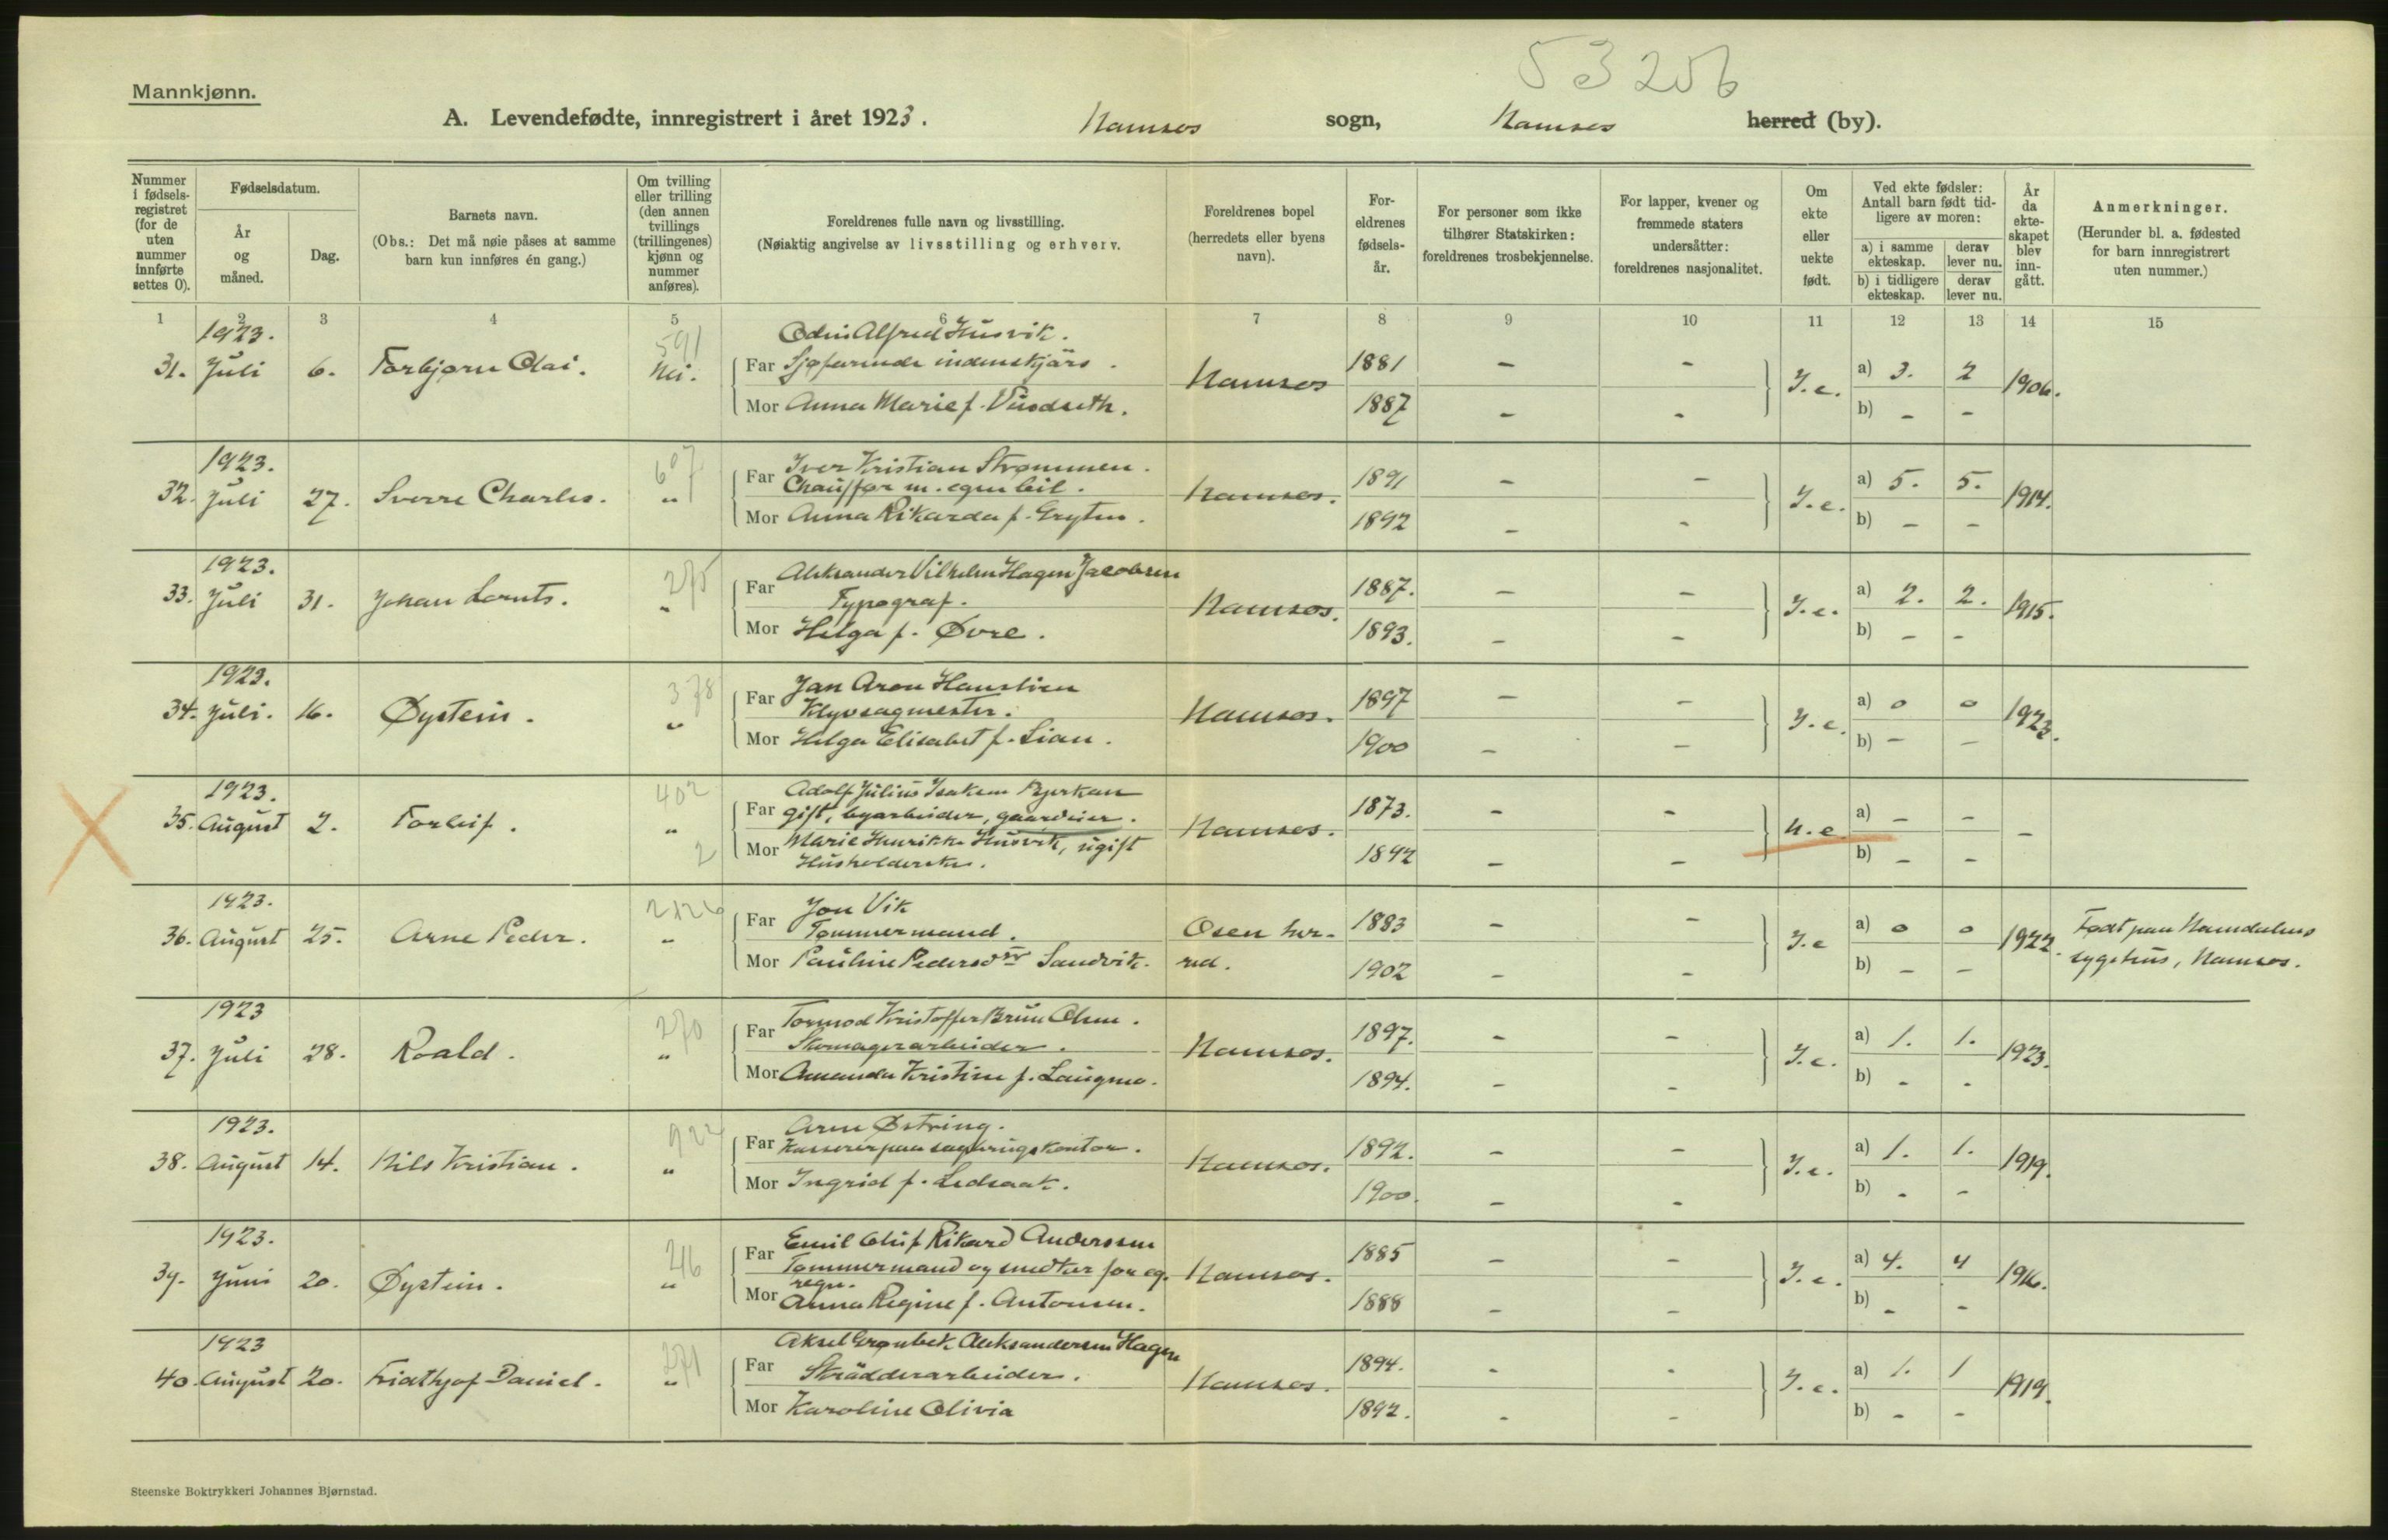 53206
Mannkjønn.
A. Levendefødte, innregistrert i året 1923. Namsos sogn, Namsos herred (by).
Nummer i fødselsregistret (for de uten nummer innførte settes 0).
Fødselsdatum.
År og måned.
Dag.
Barnets navn.
(Obs.: Det må nøie påses at samme barn kun innføres én gang.)
Om tvilling eller trilling (den annen tvillings (trillingenes) kjønn og nummer anføres).
Foreldrenes fulle navn og livsstilling.
(Nøiaktig angivelse av livsstilling og erhverv.
Foreldrenes bopel (herredets eller byens navn).
Foreldrenes fødselsår.
For personer som ikke tilhører Statskirken: foreldrenes trosbekjennelse.
For lapper, kvener og fremmede staters undersåtter: foreldrenes nasjonalitet.
Om ekte eller uekte født.
Ved ekte fødsler: Antall barn født tidligere av moren:
a) i samme ekteskap. derav lever nu.
b) i tidligere ekteskap. derav lever nu.
År da ekteskapet blev inngått.
Anmerkninger.
(Herunder bl. a. fødested for barn innregistrert uten nummer.)
1 2 3 4 5 6 7 8 9 10 11 12 13 14 15
1923. 591 Odin Alfred Husvik.
31. Juli 6. Torbjørn Olai. Nei. Far Sjøfarende indenskjärs. Namsos 1881 - - J.e. a) 3. 2 1906.
Mor Anna Marie f. Vundseth. 1887 - - b) - -
1923. 607 Iver Kristian Strømmen.
32. Juli 27. Sverre Charles. " Far Chauffør m. egen bil. Namsos. 1891 - - J.e. a) 5. 5. 1914.
Mor Anna Rikarda f. Gryten. 1892 - - b) - -
1923. 275 Aleksander Vilhelm Hagen Jacobsen
33. Juli 31. Johan Lornts. " Far Typograf. Namsos. 1887. - - J.e. a) 2. 2. 1915.
Mor Helga f. Øvre. 1893. - - b) - -
1923. 378 Jan Aron
34. Juli. 16. Øystein. " Far Klyvsagmester. Namsos. 1897 - - J.e. a) 0 0 1923.
Mor Helga Elisabet f. Lian. 1900 - - b) - -
1923. 402 Adolf Julius Isaksen Bjerkan
35. August 2. Torleif. " Far gift, byarbeider, gaardeier. Namsos. 1873. - - U.e. a) - - -
2 Mor Marie Henrikke Husvik, ugift 1892 - - b) - -
Husholderske.
1923. Jon Vik
36. August 25. Arne Peder. " Far Tømmermand. Osen her- 1883 - - J.e a) 0 0 1922. Født paa Namdalens
Mor Pauline Pedersdtr Sandvik. red. 1902 - - b) - - sygehus, Namsos.
1923 270 Tormod Kristoffer Brun Olsen.
37. Juli 28. Roald. " Far Skomagerarbeider. Namsos. 1897. - - J.e. a) 1. 1. 1923.
Mor Amanda Kristine f. Laugmo. 1894. - - b) - -
1923. 922 Arne Østring.
38. August 14. Nils Kristian. " Far Kasserer paa sagbrugskontor. Namsos. 1892. - - J.e. a) 1. 1. 1919.
Mor Ingrid f. Ledsaak. 1900. - - b) - -
1923. 216 Emil Oluf Rikard Anderssen
39. Juni 20. Øystein. " Far Tømmermand og snedker for eg. Namsos. 1885 - - J.e. a) 4. 4 1916.
regn.
Mor Anna Regine f. Antonsen. 1888 - - b) - -
1923 271 Aksel Grønbek Aleksandersen Hagen
40. August 20. Fridthjof Daniel. " Far Skrädderarbeider. Namsos. 1894. - - J.e. a) 1. 1 1919.
Mor Karoline Olivia 1892. - - b) - -
Steenske Boktrykkeri Johannes Bjørnstad.